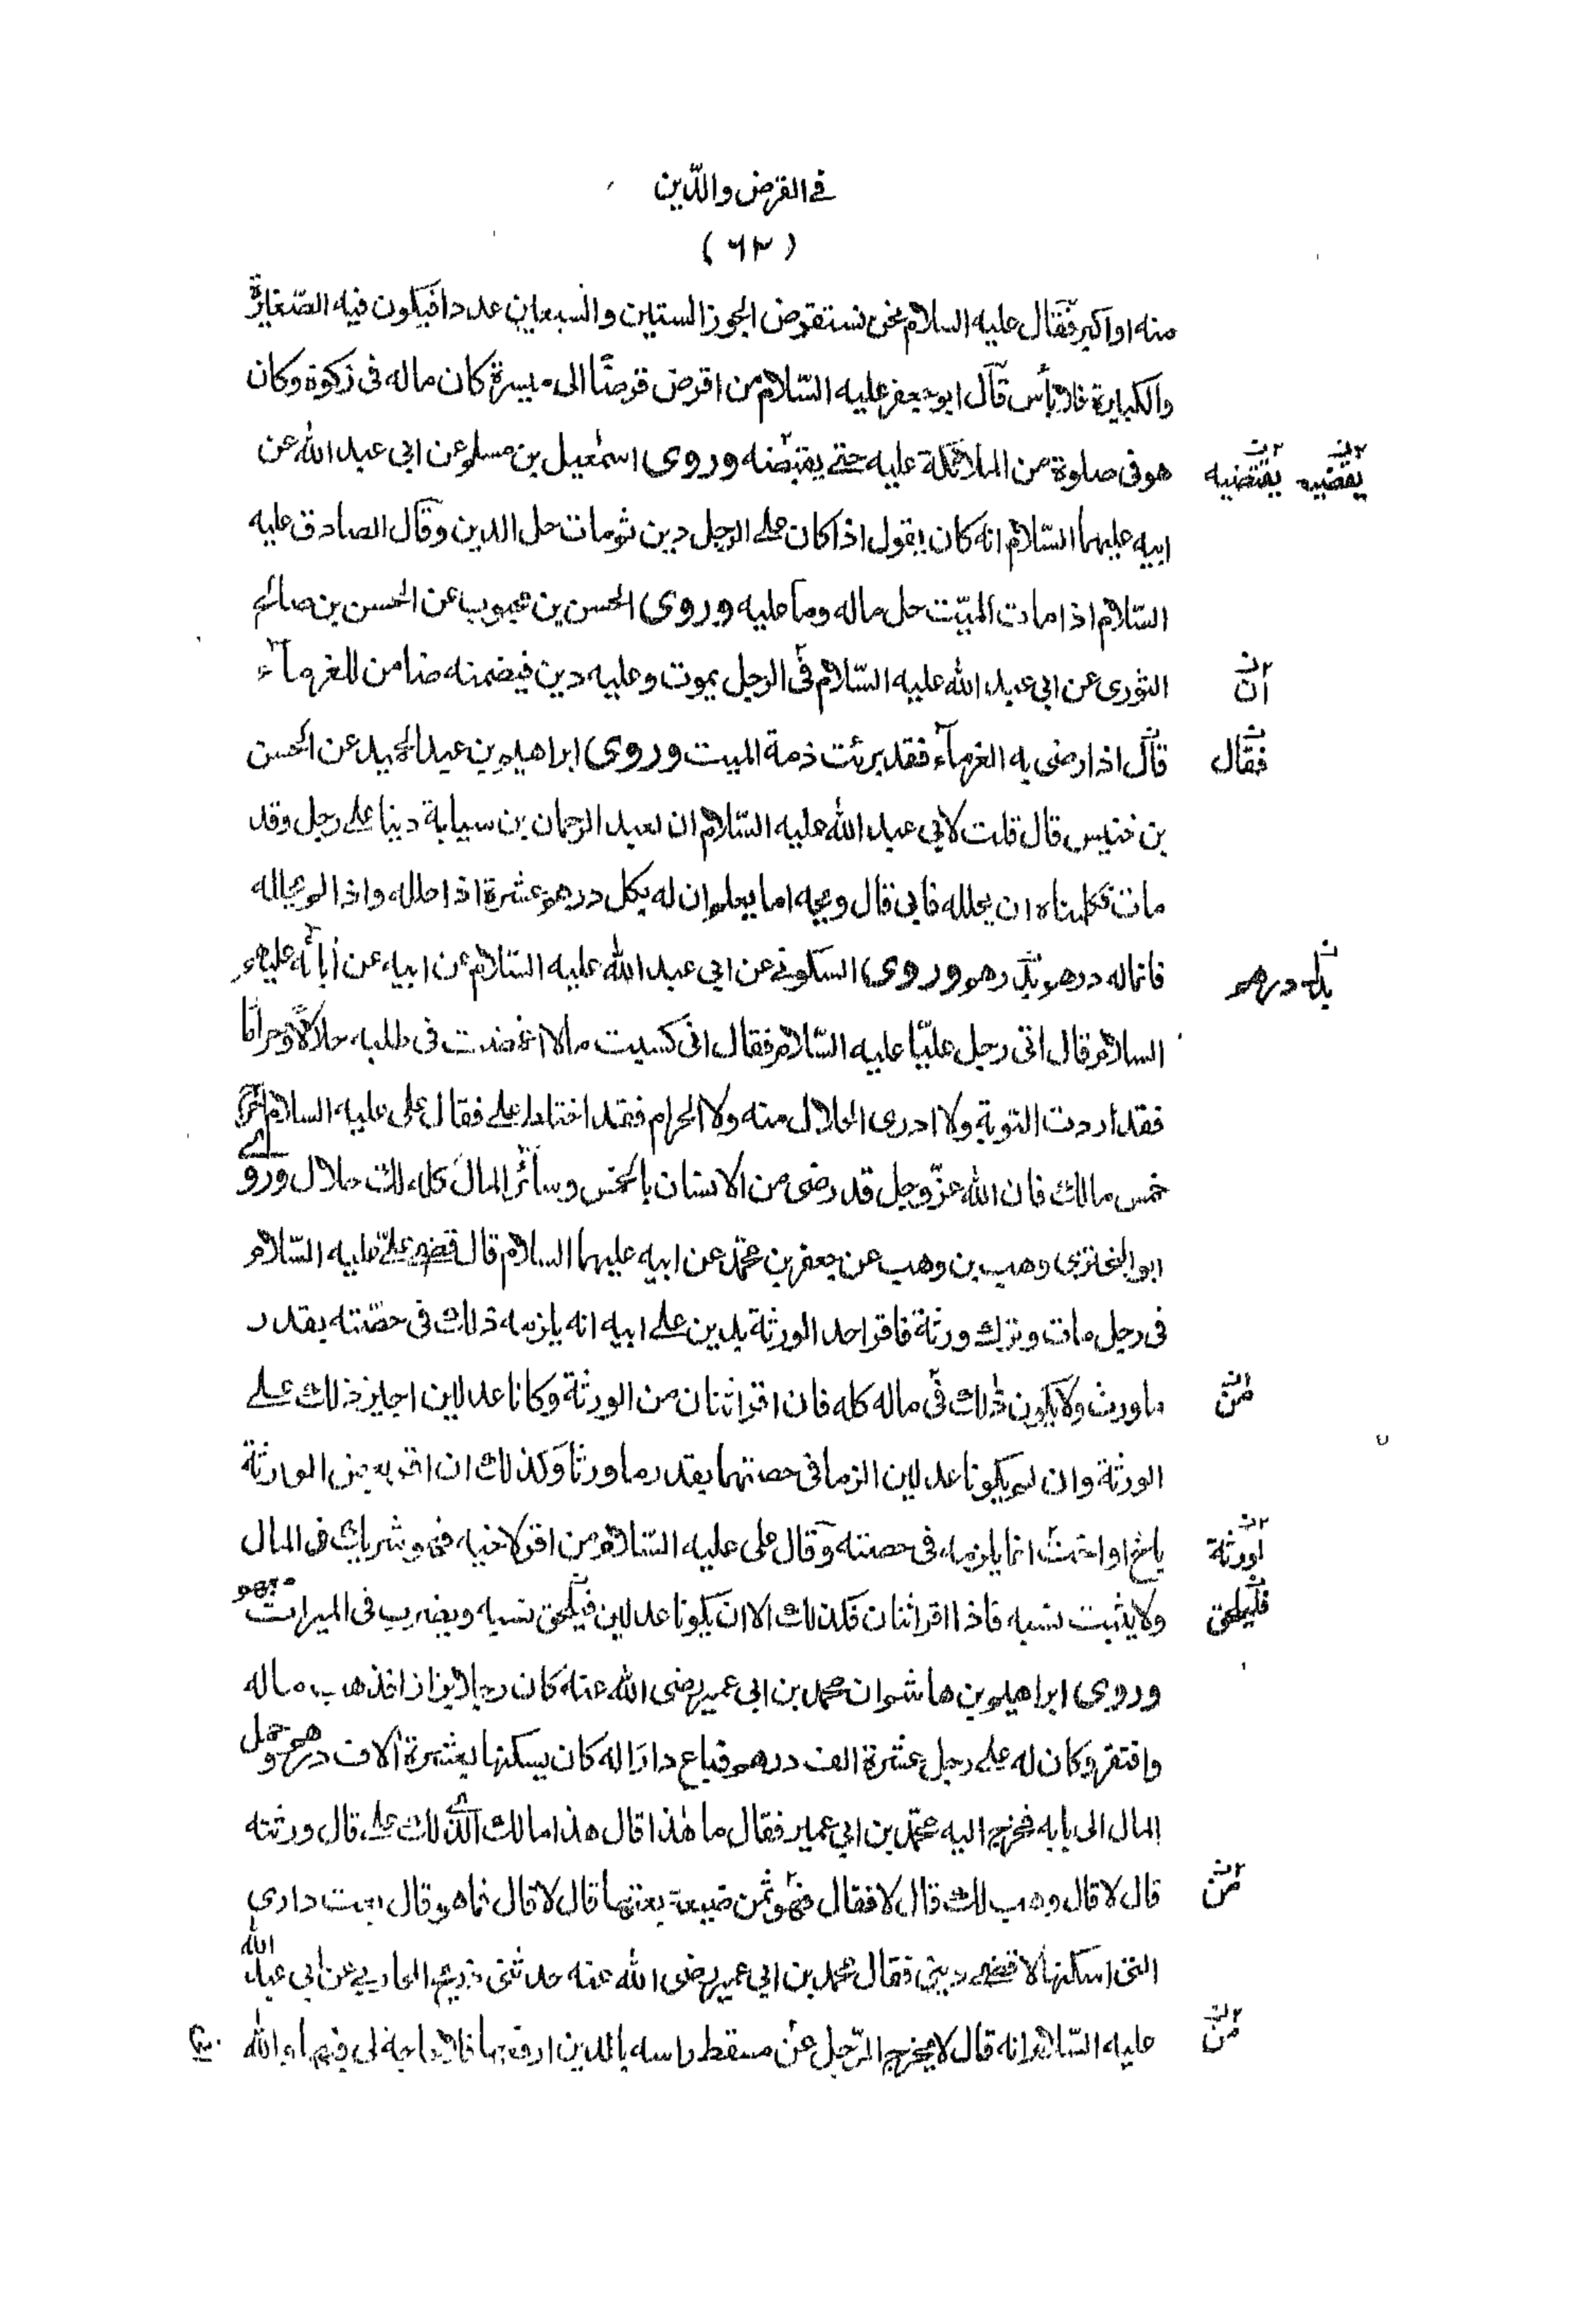 في القرض والدّين
(٦٣)
منه او اكبر فقال عليه السلام نحن نستقرض الجوز الستين والسبعين عددا فيكون فيه الصّغيرة
والكبيرة فلا بأس قال ابو جعفر عليه السّلام من اقرض قرضًا الى ميسرة كان ماله فى زكوة وكان
هو فى صلوة من الملائكة عليه حتى يقبضه وروى اسمٰعيل بن مسلم عن ابى عبد الله عن
يقتضيه يقضيه
ابيه عليهما السّلام انه كان يقول اذا كان على الرجل دين ثم مات حل الدين وقال الصادق عليه
السّلام اذا مات الميّت حل ماله وما عليه وروى الحسن بن محبوب عن الحسن بن صالح
الثورى عن ابى عبد الله عليه السّلام فى الرجل يموت وعليه دين فيضمنه ضامن للغرماء
ان
قال اذا رضى به الغرماء فقد برئت ذمة الميت وروى ابراهيم بن عبد الحميد عن الحسن
فقال
بن خنيس قال قلت لابى عبد الله عليه السّلام ان لعبد الرحمان بن سيابة دينا على رجل وقد
مات فكلمناه ان يحلله فابى قال ويحه اما يعلم ان له بكل درهم عشرة اذا حلله واذا لم يحلله
فانما له درهم بدل درهم وروى السكونى عن ابى عبد الله عليه السّلام عن ابيه عن ابآئه عليهم
بدل درهم
السلام قال اتى رجل عليّا عليه السّلام فقال انى كسبت مالا اغمضت فى طلبه حلالًا وحرامًا
فقد اردت التوبة ولا ادرى الحلال منه ولا الحرام فقد اختلط على فقال على عليه السلام اخرج
خمس مالك فان الله عزّ وجل قد رضى من الانسان بالخمس وسائر المال كله لك حلال وروى
ابو البخترى وهب بن وهب عن جعفر بن محمّد عن ابيه عليهما السلام قال قضى علىّ عليه السّلام
فى رجل مات وترك ورثة فاقر احد الورثة بدين على ابيه انه يلزمه ذلك فى حصّته بقدر
ما ورث ولا يكون ذلك فى ماله كله فان اقر اثنان من الورثة وكانا عدلين اجيز ذلك على
من
الورثة وان لم يكونا عدلين الزما فى حصتهما بقدر ما ورثا وكذلك ان اقر بعض الورثة
باخ او اخت انما يلزمه فى حصته وقال على عليه السّلام من اقر لاخيه فهو شريك فى المال
اورثة
ولا يثبت نسبه فاذا اقر اثنان فكذلك الا ان يكونا عدلين فيلحق نسبه ويضرب فى الميراث معهم
فليلحق
وروى ابراهيم بن هاشم ان محمد بن ابى عمير رضى الله عنه كان رجلا بزازا فذهب ماله
وافتقر وكان له على رجل عشرة الف درهم فباع دارًا له كان يسكنها بعشرة آلاف درهم وحمل
المال الى بابه فخرج اليه محمّد بن ابى عمير فقال ما هٰذا قال هذا مالك الذى لك على قال ورثته
قال لا قال وهب لك قال لا فقال فهو ثمن ضيعة بعتها قال لا قال فما هو قال بعت دارى
من
التى اسكنها لاقضى دينى فقال محمد بن ابى عمير رضى الله عنه حدثنى ذريح المحاربى عن ابى عبد الله
عليه السّلام انه قال لا يخرج الرّجل عن مسقط راسه بالدين ارفعها فلا حاجة لى فيها والله
من